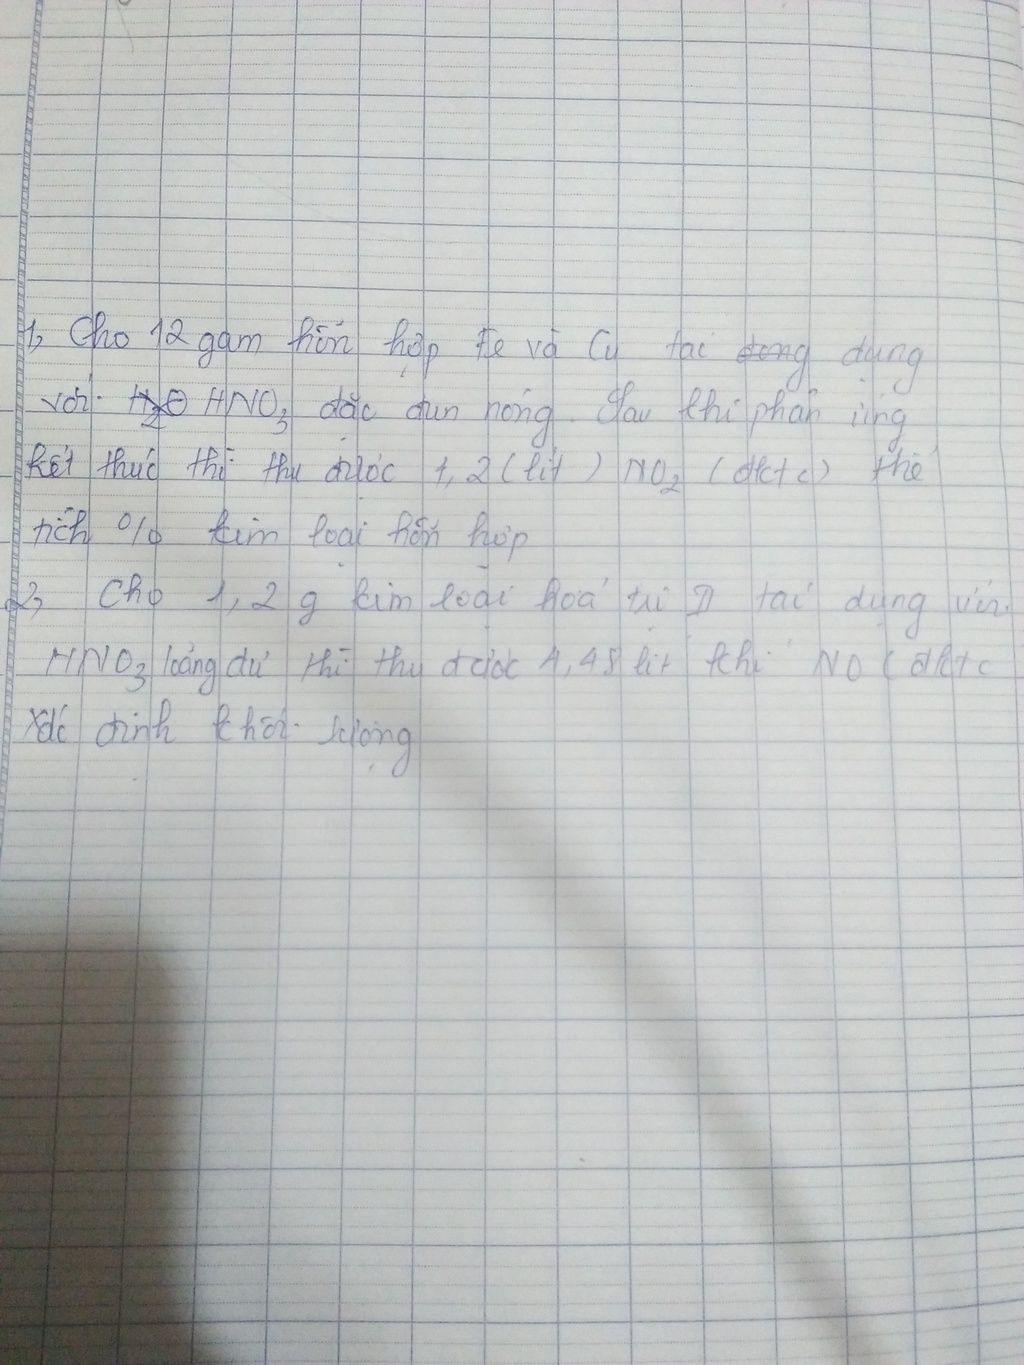 1, Cho 12 gam hỗn hợp Fe và Cu tác dụng
với HNO3 đặc đun nóng. Sau khi phản ứng
kết thúc thì thu được 1,2 (lít) NO2 (đktc) thể
tích % kim loại hỗn hợp
2, Cho 1,2 g kim loại hoá trị II tác dụng với
HNO3 loãng dư thì thu được 4,48 lít khí NO (đktc
Xác định khối lượng